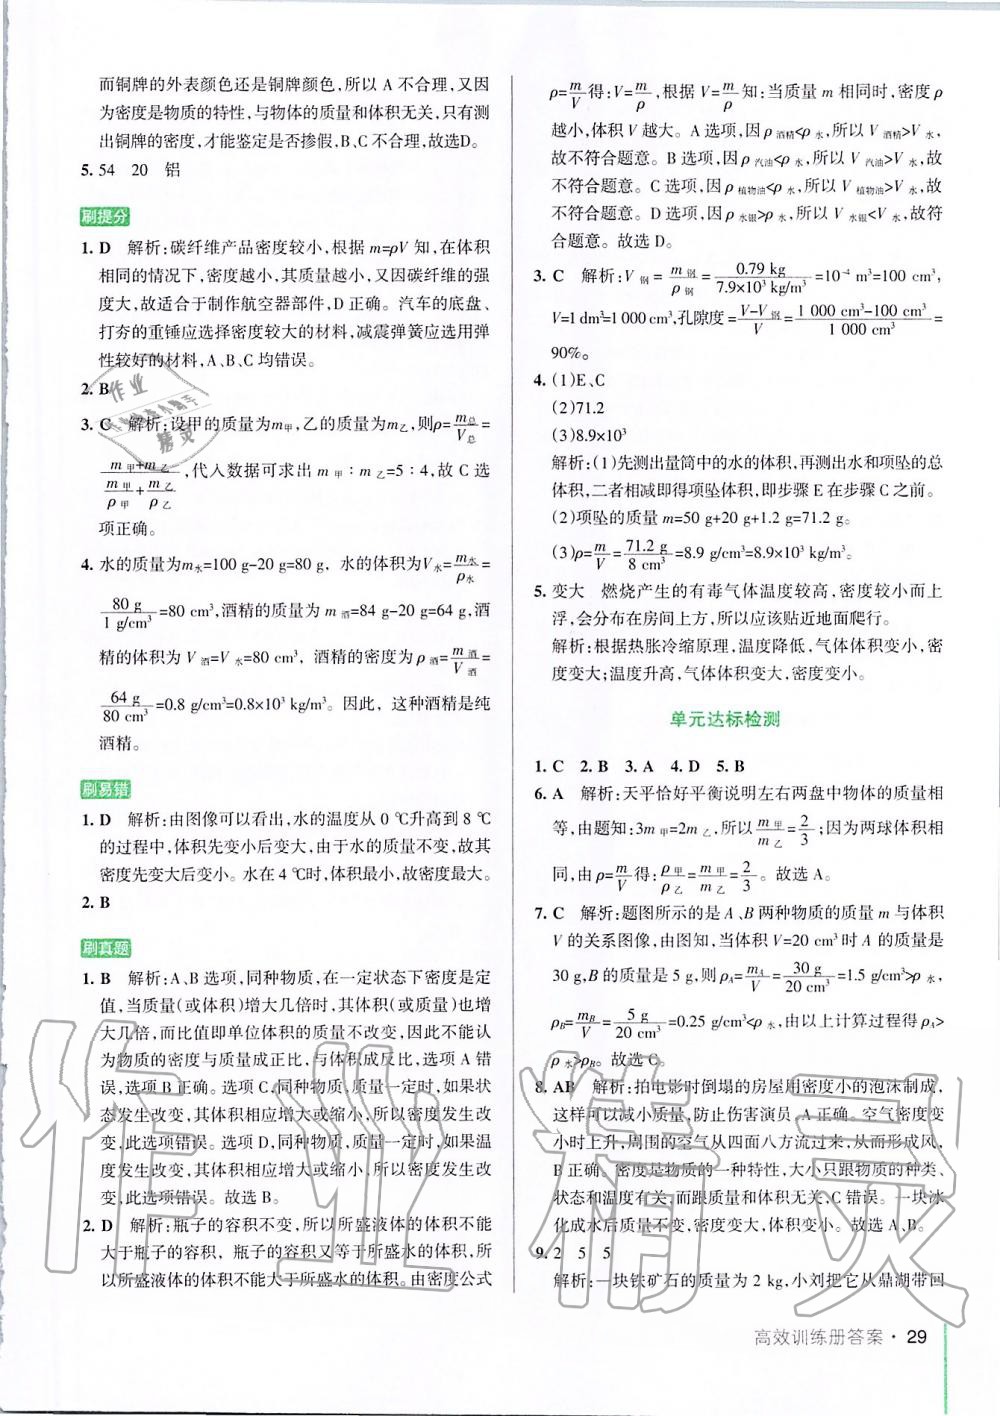 而铜牌的外表颜色还是铜牌颜色,所以 A 不合理,又因
为密度是物质的特性,与物体的质量和体积无关,只有测
出铜牌的密度,才能鉴定是否掺假,B、C 不合理,故选D。
5. 54 20 铝
刷提分
1. D 解析:碳纤维产品密度较小,根据 m=ρV 知,在体积
相同的情况下,密度越小,其质量越小,又因碳纤维的强
度大,故适合于制作航空器部件,D 正确。汽车的底盘、
打夯的重锤应选择密度较大的材料,减震弹簧应选用弹
性较好的材料,A、B、C 均错误。
2. B
3. C 解析:设甲的质量为m甲,乙的质量为m乙,则ρ=m总/V总=
(m甲+m乙)/(m甲/ρ甲+m乙/ρ乙),代入数据可求出 m甲∶m乙=5∶4,故 C 选
项正确。
4. 水的质量为m水=100 g-20 g=80 g, 水的体积为V水=m水/ρ水=
80 g/1 g/cm³=80 cm³,酒精的质量为 m酒=84 g-20 g=64 g,酒
精的体积为 V酒=V水=80 cm³, 酒精的密度为 ρ酒=m酒/V酒=
64 g/80 cm³=0.8 g/cm³=0.8×10³ kg/m³。因此, 这种酒精是纯
酒精。
刷易错
1. D 解析:由图像可以看出,水的温度从 0 ℃升高到 8 ℃
的过程中,体积先变小后变大,由于水的质量不变,故其
密度先变大后变小。水在 4 ℃时,体积最小,故密度最大。
2. B
刷真题
1. B 解析:A、B 选项,同种物质,在一定状态下密度是定
值,当质量(或体积)增大几倍时,其体积(或质量)也增
大几倍,而比值即单位体积的质量不改变,因此不能认
为物质的密度与质量成正比,与体积成反比,选项 A 错
误,选项 B 正确。选项 C,同种物质,质量一定时,如果
状态发生改变,其体积相应增大或缩小,所以密度发生改
变,此选项错误。选项 D,同种物质,质量一定时,如果温
度发生改变,其体积相应增大或缩小,所以密度发生改变,
此选项错误。故选 B。
2. D 解析:瓶子的容积不变,所以所盛液体的体积不能
大于瓶子的容积, 瓶子的容积又等于所盛水的体积,所
以所盛液体的体积不能大于所盛水的体积。由密度公式
ρ=m/V得:V=m/ρ,根据 V=m/ρ知:当质量 m 相同时,密度 ρ
越小,体积 V 越大。A 选项,因 ρ酒精<ρ水,所以 V酒精>V水,
故不符合题意。B 选项,因 ρ汽油<ρ水,所以 V汽油>V水,故
不符合题意。C 选项,因 ρ植物油<ρ水,所以 V植物油>V水,故
不符合题意。D 选项,因 ρ水银>ρ水,所以 V水银<V水,故符
合题意。故选 D。
3. C 解析:V钢=m钢/ρ钢=0.79 kg/7.9×10³ kg/m³=10⁻⁴ m³=100 cm³,
V=1 dm³=1 000 cm³,孔隙度=(V-V钢)/V=(1 000 cm³-100 cm³)/1 000 cm³=
90%。
4. (1)E、C
(2)71.2
(3)8.9×10³
解析:(1)先测出量筒中的水的体积,再测出水和项坠的总
体积,二者相减即得项坠体积,即步骤 E 在步骤 C 之前。
(2)项坠的质量 m=50 g+20 g+1.2 g=71.2 g。
(3)ρ=m/V=71.2 g/8 cm³=8.9 g/cm³=8.9×10³ kg/m³。
5. 变大 燃烧产生的有毒气体温度较高,密度较小而上
浮,会分布在房间上方,所以应该贴近地面爬行。
解析:根据热胀冷缩原理,温度降低,气体体积变小,密
度变大;温度升高,气体体积变大,密度变小。
单元达标检测
1. C 2. B 3. A 4. D 5. B
6. A 解析:天平恰好平衡说明左右两盘中物体的质量相
等,由题知:3m甲=2m乙,所以m甲/m乙=2/3;因为两球体积相
同,由 ρ=m/V得:ρ甲/ρ乙=m甲/m乙=2/3。故选 A。
7. C 解析:题图所示的是 A、B 两种物质的质量 m 与体积
V 的关系图像,由图知,当体积 V=20 cm³ 时 A 的质量是
30 g,B 的质量是 5 g,则 ρA=mA/V=30 g/20 cm³=1.5 g/cm³>ρ水,
ρB=mB/V=5 g/20 cm³=0.25 g/cm³<ρ水,由以上计算过程得 ρA>
ρ水>ρB。故选 C。
8. AB 解析:拍电影时倒塌的房屋用密度小的泡沫制成,
这样可以减小质量,防止伤害演员,A 正确。空气密度变
小时上升,周围的空气从四面八方流过来,从而形成风,
B 正确。密度是物质的一种特性,大小只跟物质的种类、
状态和温度有关,而跟质量和体积无关,C 错误。一块冰
化成水后质量不变,密度变大,体积变小。故选 A、B。
9. 2 5 5
解析:一块铁矿石的质量为 2 kg,小刘把它从鼎湖带回
高效训练册答案·29
作业精灵